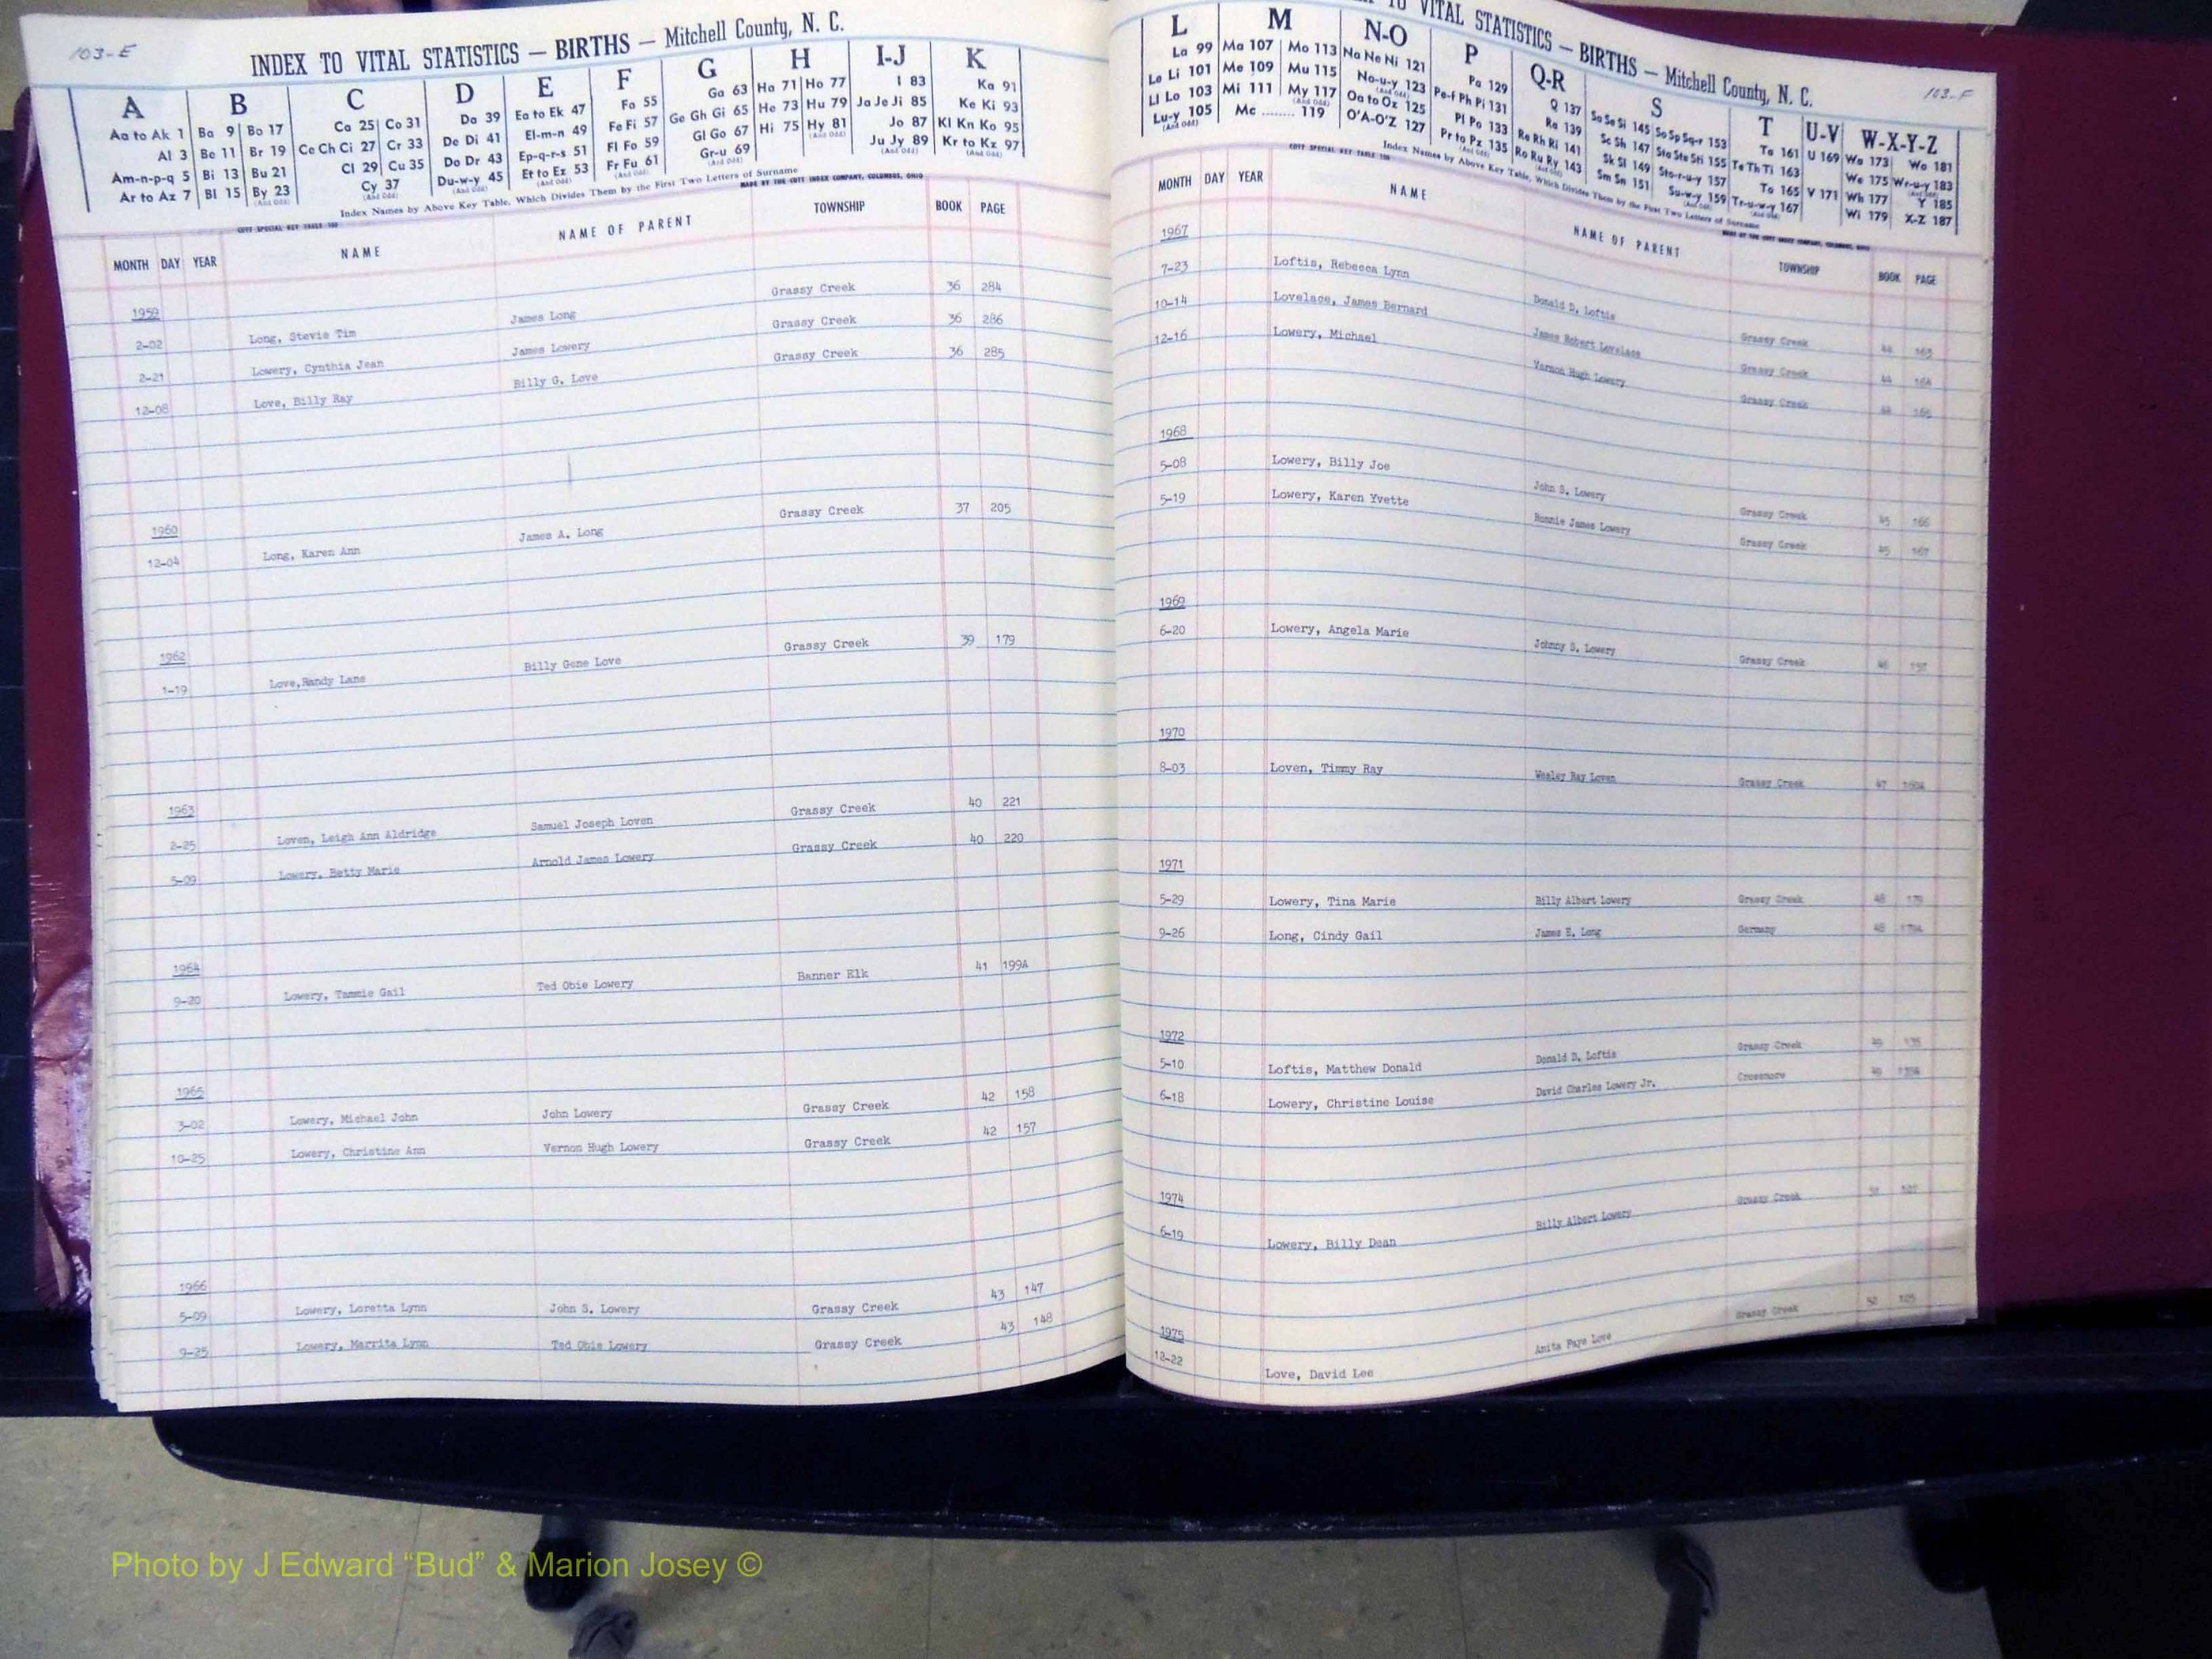 103-E
INDEX TO VITAL STATISTICS — BIRTHS — Mitchell County, N. C.
A B C D E F G H I-J K
Aa to Ak 1 Ba 9 Bo 17 Ca 25 Co 31 Da 39 Ea to Ek 47 Fa 55 Ga 63 Ha 71 Ho 77 I 83 Ka 91
Al 3 Be 11 Br 19 Ce Ch Ci 27 Cr 33 De Di 41 El-m-n 49 Fe Fi 57 Ge Gh Gi 65 He 73 Hu 79 Ja Je Ji 85 Ke Ki 93
Am-n-p-q 5 Bi 13 Bu 21 Cl 29 Cu 35 Do Dr 43 Ep-q-r-s 51 Fl Fo 59 Gl Go 67 Hi 75 Hy 81 (And Odd) Jo 87 Kl Kn Ko 95
Ar to Az 7 Bl 15 By 23 (And Odd) Cy 37 (And Odd) Du-w-y 45 (And Odd) Et to Ez 53 (And Odd) Fr Fu 61 (And Odd) Gr-u 69 (And Odd) Ju Jy 89 (And Odd) Kr to Kz 97 (And Odd)
Index Names by Above Key Table, Which Divides Them by the First Two Letters of Surname
COTT SPECIAL KEY TABLE 100 MADE BY THE COTT INDEX COMPANY, COLUMBUS, OHIO
MONTH DAY YEAR NAME NAME OF PARENT TOWNSHIP BOOK PAGE
1959
2-02 Long, Stevie Tim James Long Grassy Creek 36 284
2-21 Lowery, Cynthia Jean James Lowery Grassy Creek 36 286
12-08 Love, Billy Ray Billy G. Love Grassy Creek 36 285
1960
12-04 Long, Karen Ann James A. Long Grassy Creek 37 205
1962
1-19 Love,Randy Lane Billy Gene Love Grassy Creek 39 179
1963
2-25 Loven, Leigh Ann Aldridge Samuel Joseph Loven Grassy Creek 40 221
5-09 Lowery, Betty Marie Arnold James Lowery Grassy Creek 40 220
1964
9-20 Lowery, Tammie Gail Ted Obie Lowery Banner Elk 41 199A
1965
3-02 Lowery, Michael John John Lowery Grassy Creek 42 158
10-25 Lowery, Christine Ann Vernon Hugh Lowery Grassy Creek 42 157
1966
5-09 Lowery, Loretta Lynn John S. Lowery Grassy Creek 43 147
9-25 Lowery, Marrita Lynn Ted Obie Lowery Grassy Creek 43 148
TO VITAL STATISTICS — BIRTHS — Mitchell County, N. C.
103-F
L M N-O P Q-R S T U-V W-X-Y-Z
La 99 Ma 107 Mo 113 Na Ne Ni 121 Pa 129 Q 137 Sa Se Si 145 So Sp Sq-r 153 Ta 161 U 169 Wa 173 Wo 181
Le Li 101 Me 109 Mu 115 No-u-y 123 (And Odd) Pe-f Ph Pi 131 Ra 139 Sc Sh 147 Sta Ste Sti 155 Te Th Ti 163 We 175 Wr-u-y 183 (And Odd)
Ll Lo 103 Mi 111 My 117 (And Odd) Oa to Oz 125 Pl Po 133 Re Rh Ri 141 Sk Sl 149 Sto-r-u-y 157 To 165 V 171 Wh 177 Y 185
Lu-y 105 (And Odd) Mc ........ 119 O'A-O'Z 127 Pr to Pz 135 (And Odd) Ro Ru Ry 143 (And Odd) Sm Sn 151 Su-w-y 159 (And Odd) Tr-u-w-y 167 (And Odd) Wi 179 X-Z 187
Index Names by Above Key Table, Which Divides Them by the First Two Letters of Surname
COTT SPECIAL KEY TABLE 100 MADE BY THE COTT INDEX COMPANY, COLUMBUS, OHIO
MONTH DAY YEAR NAME NAME OF PARENT TOWNSHIP BOOK PAGE
1967
7-23 Loftis, Rebecca Lynn Donald D. Loftis Grassy Creek 44 163
10-14 Lovelace, James Bernard James Robert Lovelace Grassy Creek 44 164
12-16 Lowery, Michael Vernon Hugh Lowery Grassy Creek 44 165
1968
5-08 Lowery, Billy Joe John S. Lowery Grassy Creek 45 166
5-19 Lowery, Karen Yvette Ronnie James Lowery Grassy Creek 45 167
1969
6-20 Lowery, Angela Marie Johnny S. Lowery Grassy Creek 46
1970
8-03 Loven, Timmy Ray Wesley Ray Loven Grassy Creek 47
1971
5-29 Lowery, Tina Marie Billy Albert Lowery Grassy Creek 48 179
9-26 Long, Cindy Gail James E. Long Germany 48
1972
5-10 Loftis, Matthew Donald Donald D. Loftis Grassy Creek 49
6-18 Lowery, Christine Louise David Charles Lowery Jr. Crossnore 49
1974
6-19 Lowery, Billy Dean Billy Albert Lowery Grassy Creek
1975
12-22 Love, David Lee Anita Faye Love Grassy Creek
Photo by J Edward “Bud” & Marion Josey ©